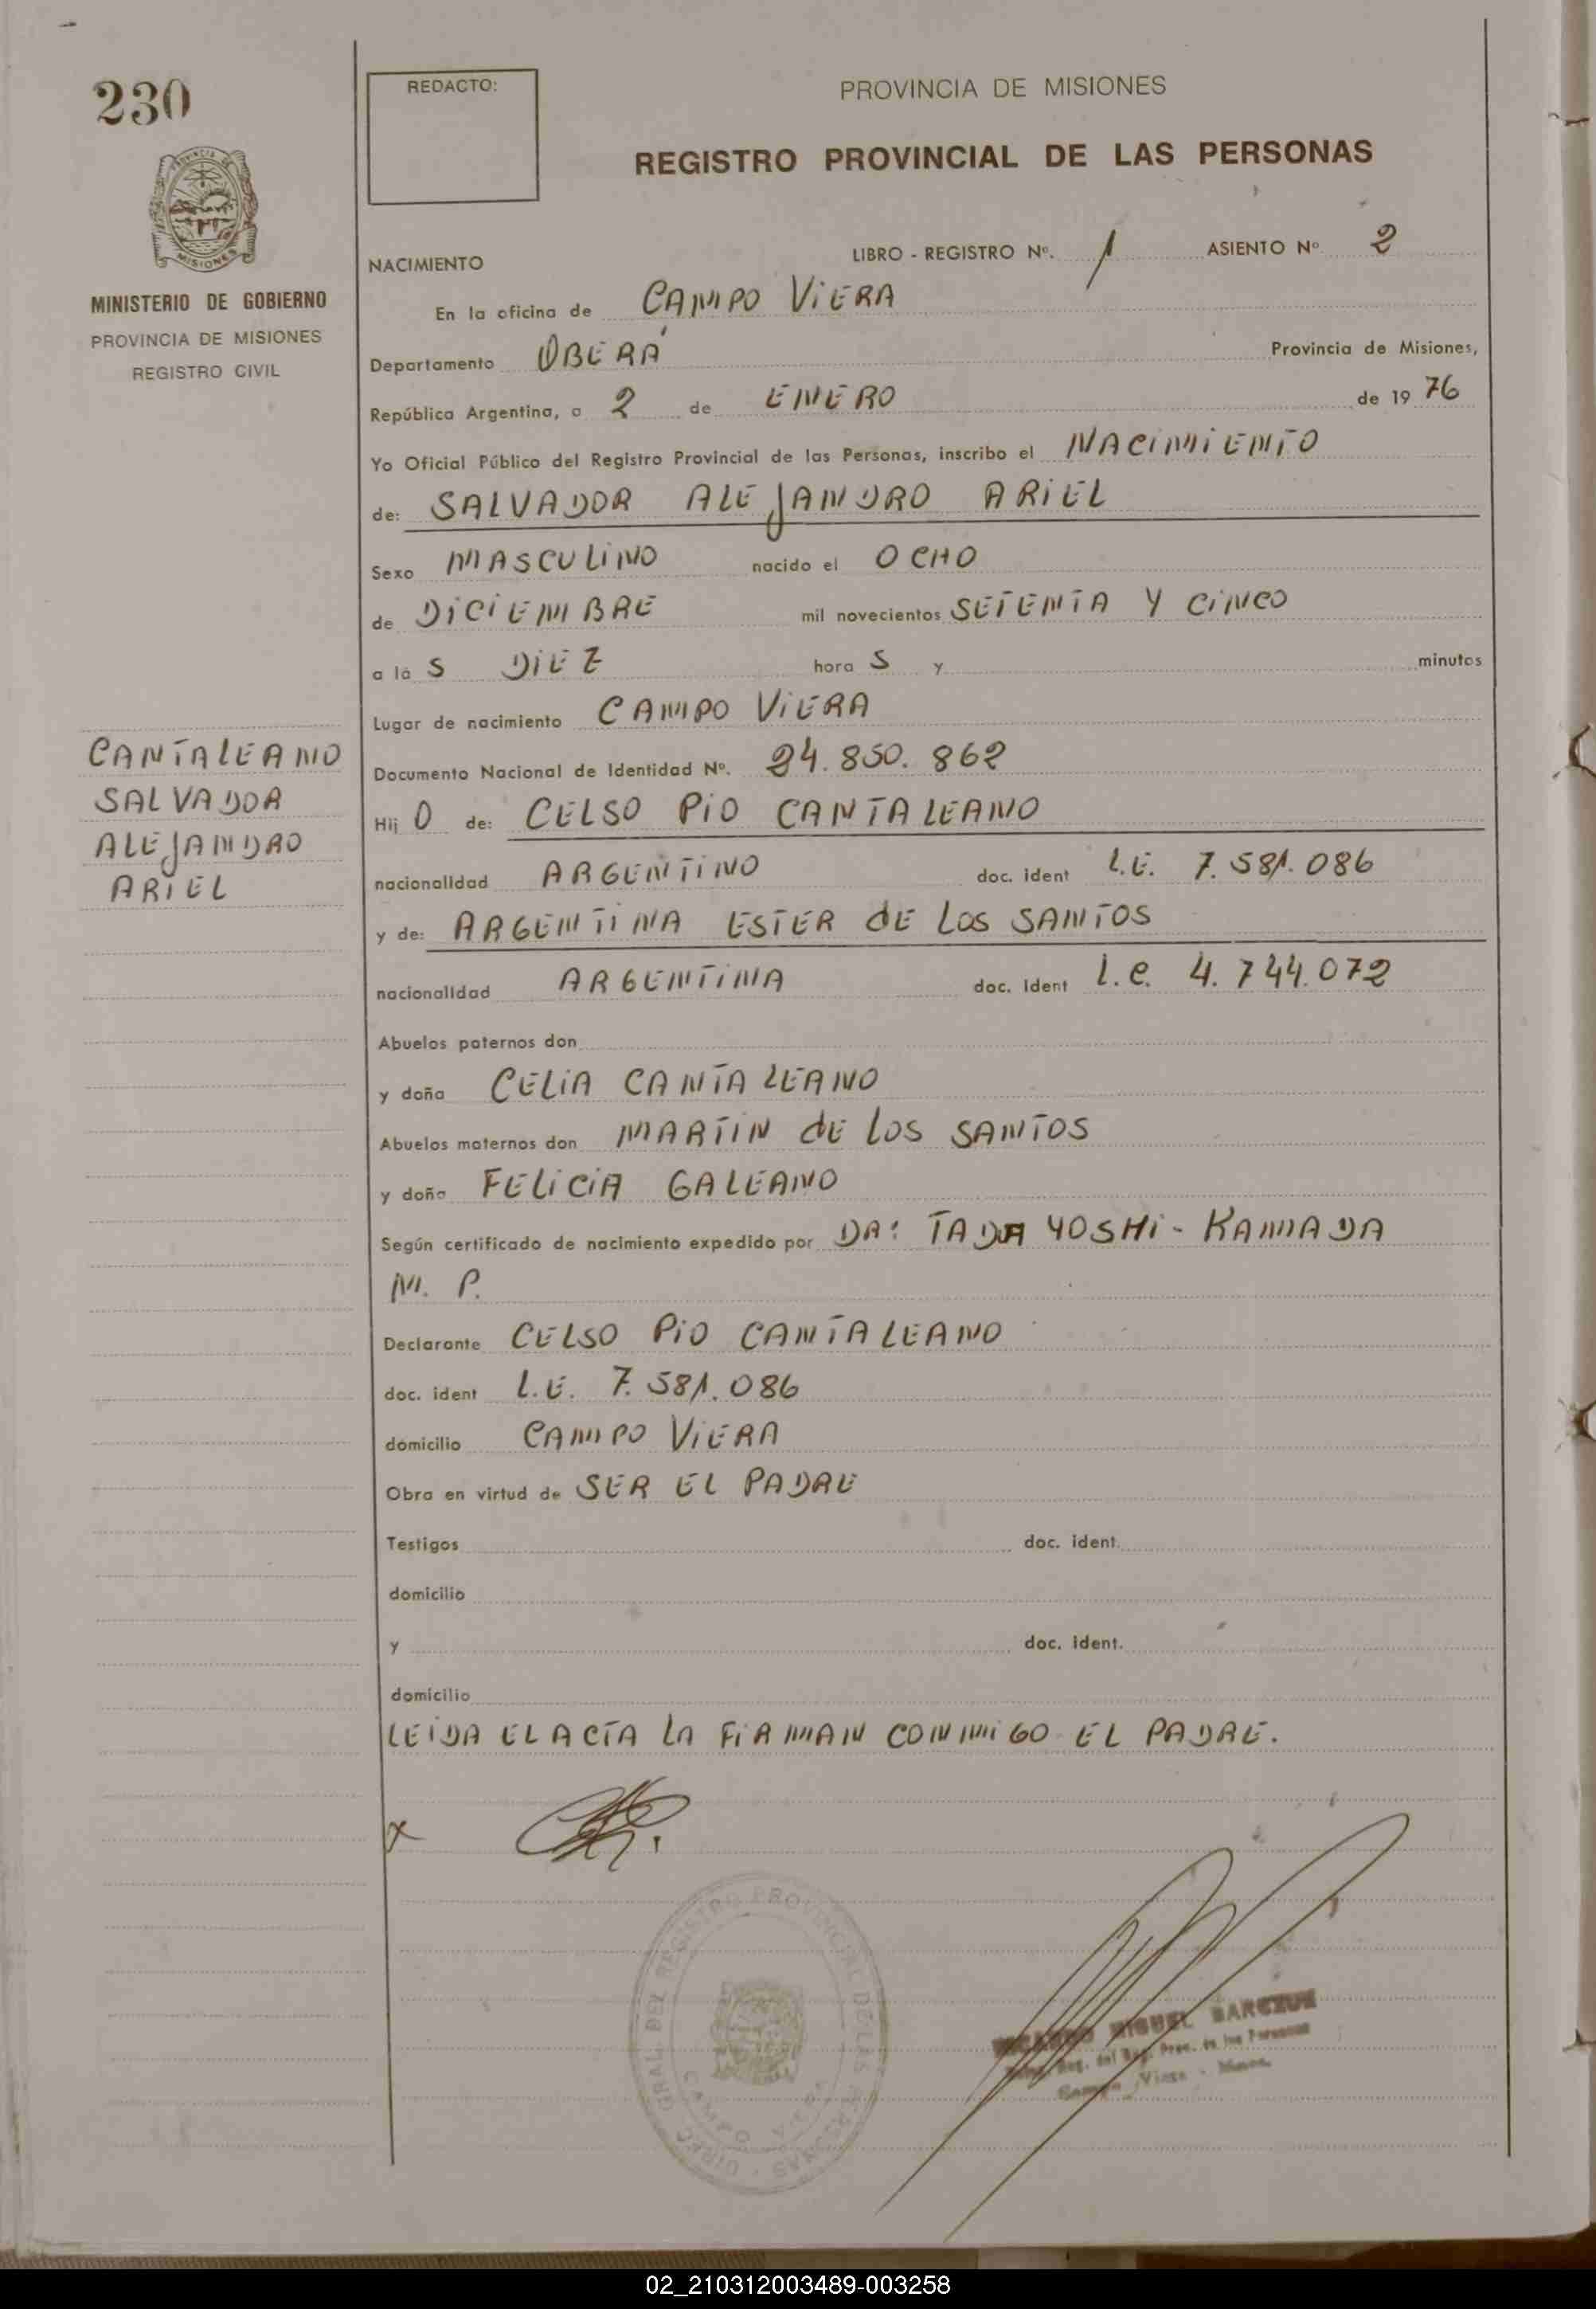 230
REDACTO:
PROVINCIA DE MISIONES
REGISTRO PROVINCIAL DE LAS PERSONAS
MISIONES
MINISTERIO DE GOBIERNO
PROVINCIA DE MISIONES
REGISTRO CIVIL
NACIMIENTO LIBRO - REGISTRO Nº. 1 ASIENTO Nº 2
En la oficina de CAMPO ViERA
Departamento OBERÁ Provincia de Misiones,
República Argentina, a 2 de ENERO de 19 76
Yo Oficial Público del Registro Provincial de las Personas, inscribo el NACiMiENTO
de: SALVADOR ALEJANDRO ARiEL
Sexo MASCULiNO nacido el OCHO
de DiCiEMBRE mil novecientos SETENTA Y CiNCO
a la S DiEZ hora S y minutos
Lugar de nacimiento CAMPO ViERA
Documento Nacional de Identidad Nº. 24.850.862
Hij O de: CELSO PiO CANTALEANO
nacionalidad ARGENTiNO doc. ident L.E. 7.581.086
y de: ARGENTiNA ESTER dE LOS SANTOS
nacionalidad ARGENTiNA doc. ident L.e. 4.744.072
Abuelos paternos don
y doña CELiA CANTALEANO
Abuelos maternos don MARTiN dE LOS SANTOS
y doña FELiCiA GALEANO
Según certificado de nacimiento expedido por DR: TADA YOSHi - KAMADA
M. P.
Declarante CELSO PiO CANTALEANO
doc. ident L.E. 7.581.086
domicilio CAMPO ViERA
Obra en virtud de SER EL PADRE
Testigos doc. ident.
domicilio
y doc. ident.
domicilio
LEiDA EL ACTA LA FiRMAN CONMiGO EL PADRE.
CANTALEANO
SALVADOR
ALEJANDRO
ARiEL
x
DIREC. GRAL. DEL REGISTRO PROVINCIAL DE LAS PERSONAS
CAMPO VIERA
MIGUEL
Reg. del Reg. Prov. de las Personas
Campo Viera -
02_210312003489-003258